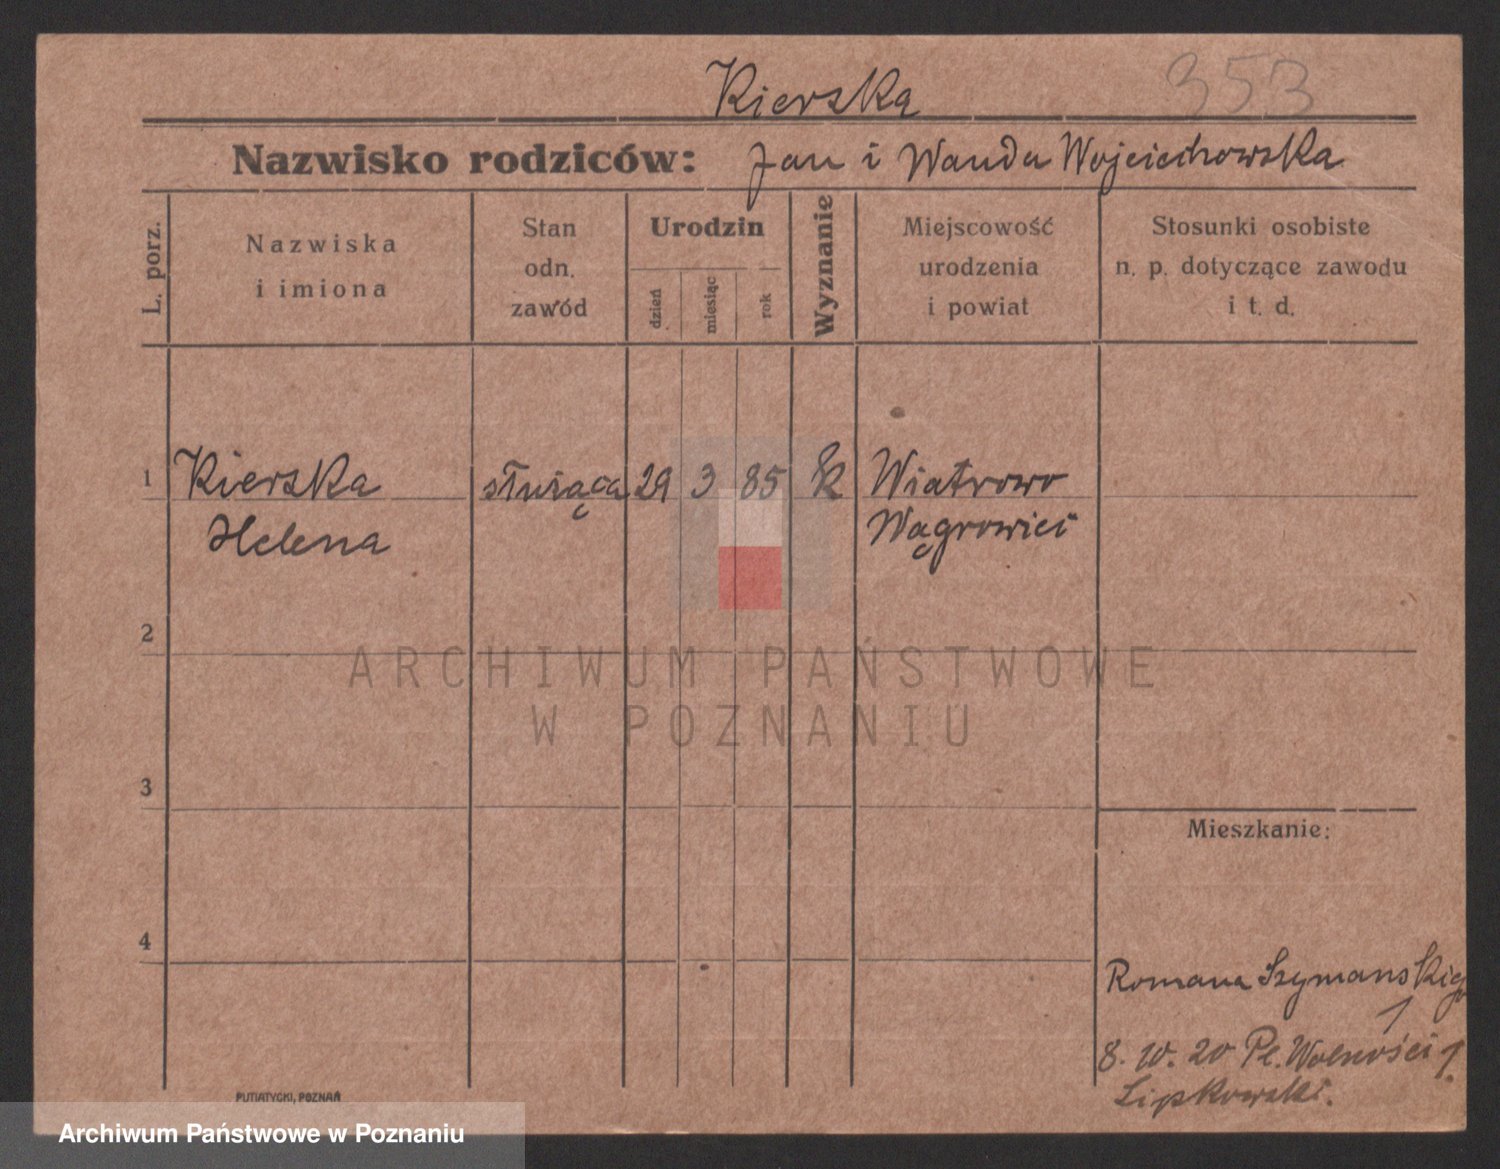 Kierska 353
Nazwisko rodziców: Jan i Wanda Wojciechowska
L. porz.
Nazwiska
i imiona
Stan
odn.
zawód
Urodzin
dzień
miesiąc
rok
Wyznanie
Miejscowość
urodzenia
i powiat
Stosunki osobiste
n. p. dotyczące zawodu
i t. d.
1 Kierska służąca 29 3 85 k Wiatrowo
Helena Wągrowiec
2
ARCHIWUM PAŃSTWOWE
W POZNANIU
3
Mieszkanie:
4
Romana Szymańskiego
1
8. 10. 20 Pl. Wolności 1.
Lipkowski.
PUTIATYCKI, POZNAŃ
Archiwum Państwowe w Poznaniu